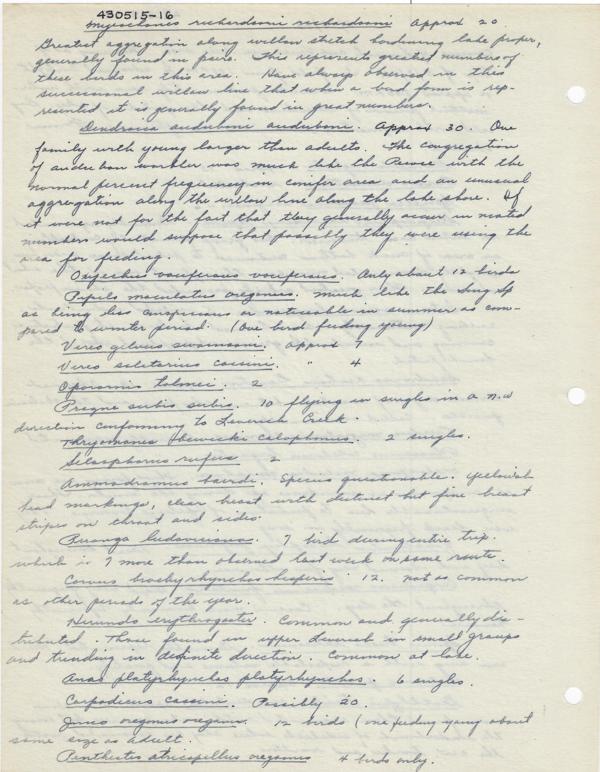 430515-16
Myiochanes richardsoni richardsoni Approx 20.
Greatest aggregation along willow stretch bordering lake proper,
generally found in pairs. This represents greatest numbers of
these birds in this area. Have always observed in this
successional willow line that when a bird form is rep-
resented it is generally found in great numbers.
Dendroica auduboni auduboni. Approx 30. One
family with young larger than adults. The congregation
of audubon warbler was much like the Pewee with the
normal percent frequency in conifer area and an unusual
aggregation along the willow line along the lake shore. If
it were not for the fact that they generally occur in nested
numbers would suppose that possibly they were using the
area for feeding.
Oxyechus vociferous vociferous. Only about 12 birds
Pipilo maculatus oregonus. Much like the Song Sp
as being less conspicuous or noticeable in summer as com-
pared to winter period. (One bird feeding young)
Vireo gilvus swainsoni. Approx 7
Vireo solitarius cassini. " 4
Oporornis tolmiei. 2
Progne subis subis. 10 flying in singles in a n.w
direction conforming to Leverich Creek.
Thryomanes bewicki calophonus. 2 singles.
Selasphorus rufus 2
Ammodramus bairdi. Species questionable. Yellowish
head markings, clear breast with distinct but fine breast
stripes on throat and sides.
Piranga ludoviciana. 7 bird during entire trip.
which is 7 more than observed last week on same route.
Corvus brachyrhynchos hesperis 12. not as common
as other periods of the year.
Hirundo erythrogaster. Common and generally dis-
tributed. Those found in upper Leverich in small groups
and trending in definite direction. Common at lake.
Anas platyrhynchos platyrhynchos. 6 singles.
Carpodicus cassini. Possibly 20.
Junco oreganus oreganus. 12 birds (one feeding young about
same size as adult.
Penthestes atricapillus oregonus 4 birds only.